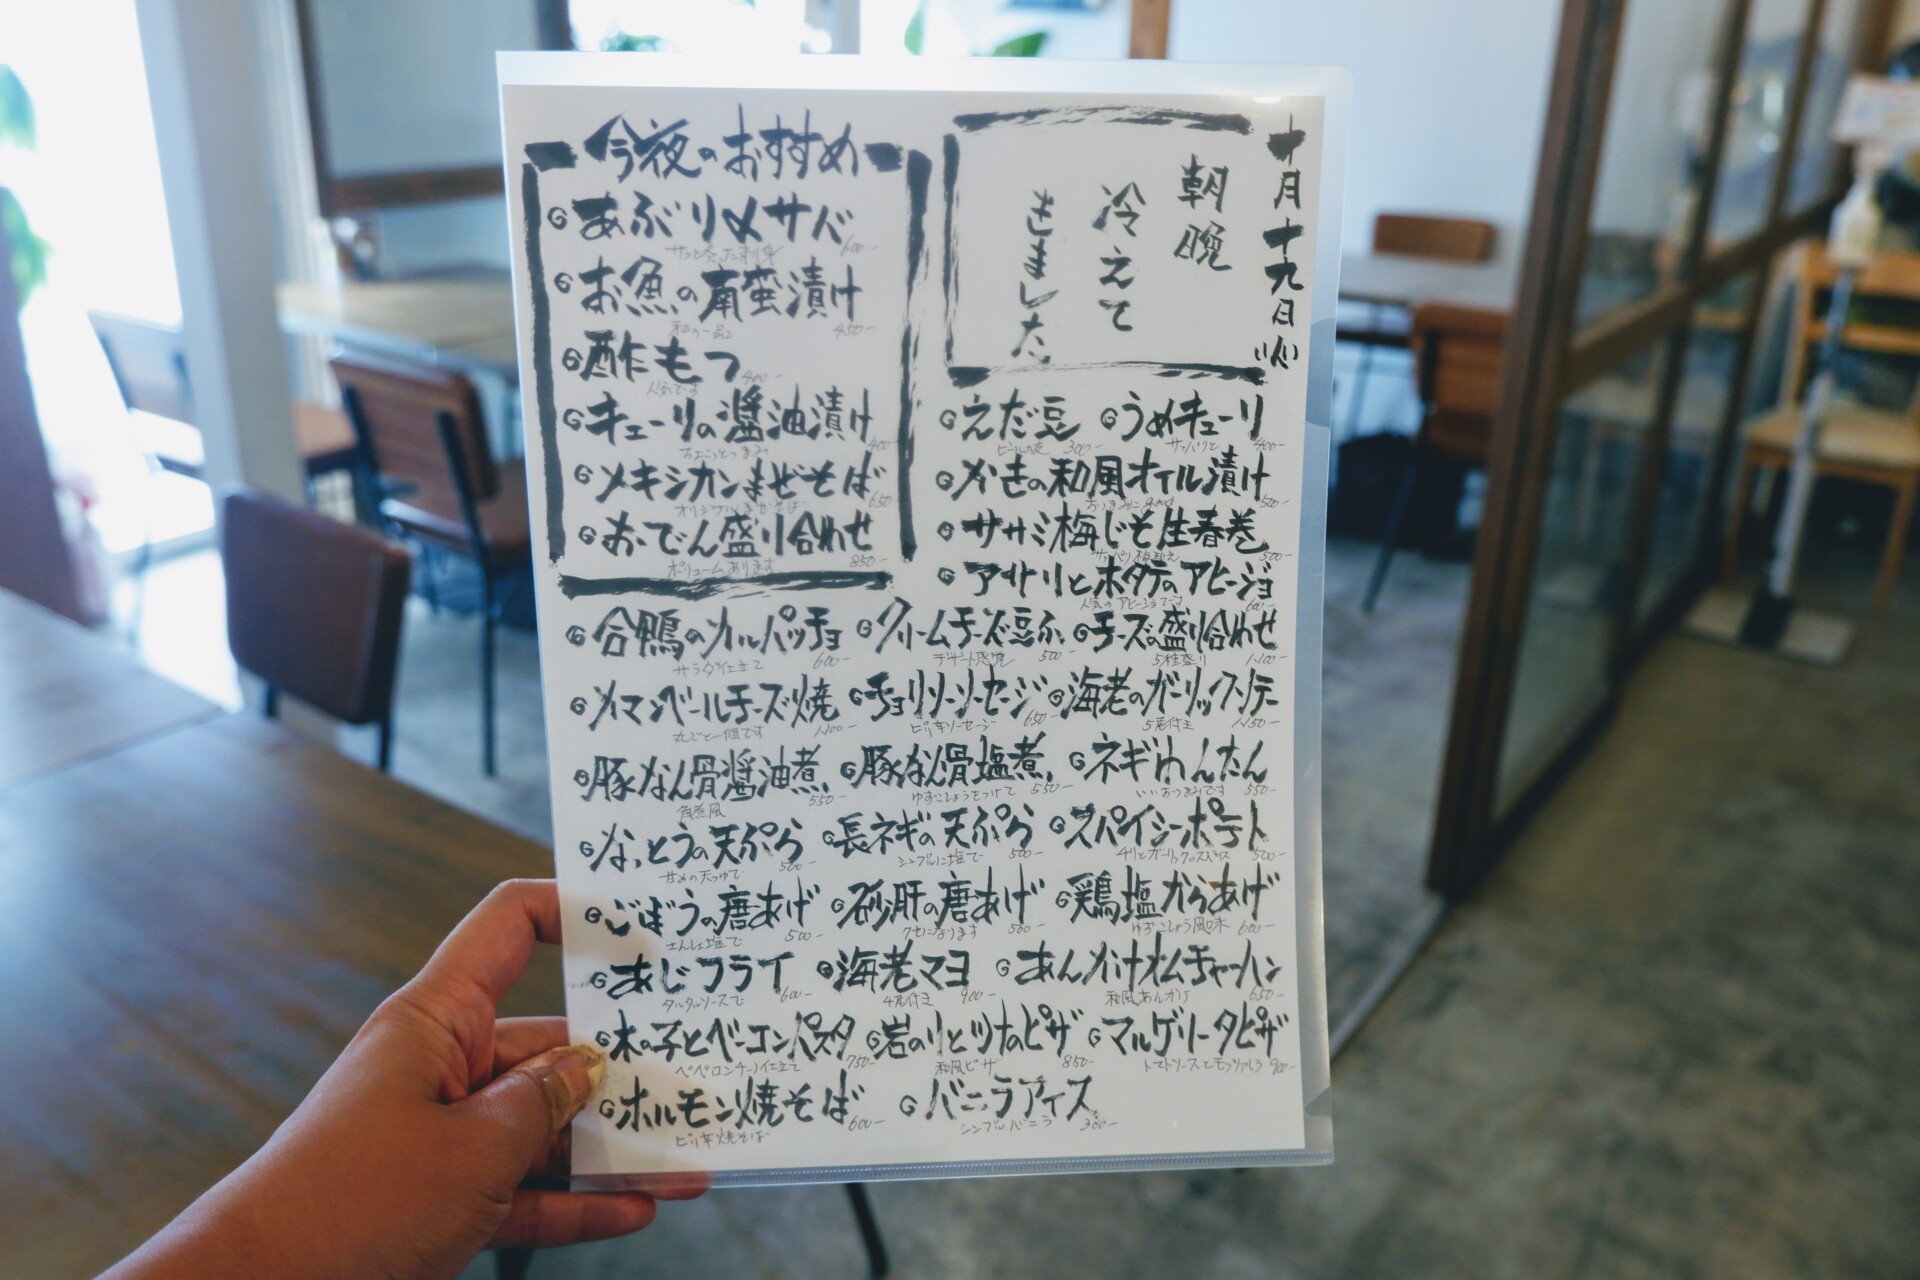 十月十九日(火)
朝晩
冷えて
きました
今夜のおすすめ
あぶり〆サバ
サッと炙った刺身 600-
お魚の南蛮漬け
和の一品 450-
酢もつ
人気です 400-
キューリの醤油漬け
ちょこっとつまみ 400
メキシカンまぜそば
オリジナルまぜそば 650
おでん盛り合わせ
ボリュームあります 850-
えだ豆 うめキューリ
ビールの友 300- サッパリと 400-
かきの和風オイル漬け
おつまみに 500-
ササミ梅じそ生春巻
サッパリ 500-
アサリとホタテのアヒージョ
人気のアヒージョです 600-
合鴨のカルパッチョ クリームチーズ豆ふ チーズの盛り合わせ
サラダ仕立て 600- デザート感覚 500- 5種盛り 1,100-
カマンベールチーズ焼 チョリソーソーセージ 海老のガーリックソテー
丸ごと一個です 1,100- ピリ辛ソーセージ 650- 5尾付き 1,150-
豚なん骨醤油煮 豚なん骨塩煮 ネギわんたん
角煮風 550- ゆずこしょうをつけて 550- いいおつまみです 550-
なっとうの天ぷら 長ネギの天ぷら スパイシーポテト
甘めの天つゆで 500- シンプルに塩で 500- チリとガーリックのスパイス 500-
ごぼうの唐あげ 砂肝の唐あげ 鶏塩からあげ
さんしょ塩で 500- クセになります 500- ゆずこしょう風味 600-
あじフライ 海老マヨ あんかけオムチャーハン
タルタルソースで 600- 4尾付き 900- 和風あんかけ 650-
木の子とベーコンパスタ 岩のりとツナのピザ マルゲリータピザ
ペペロンチーノ仕立て 750- 和風ピザ 850- トマトソースとモッツァレラ 900-
ホルモン焼そば バニラアイス
ピリ辛焼そば 600- シンプルバニラ 300-